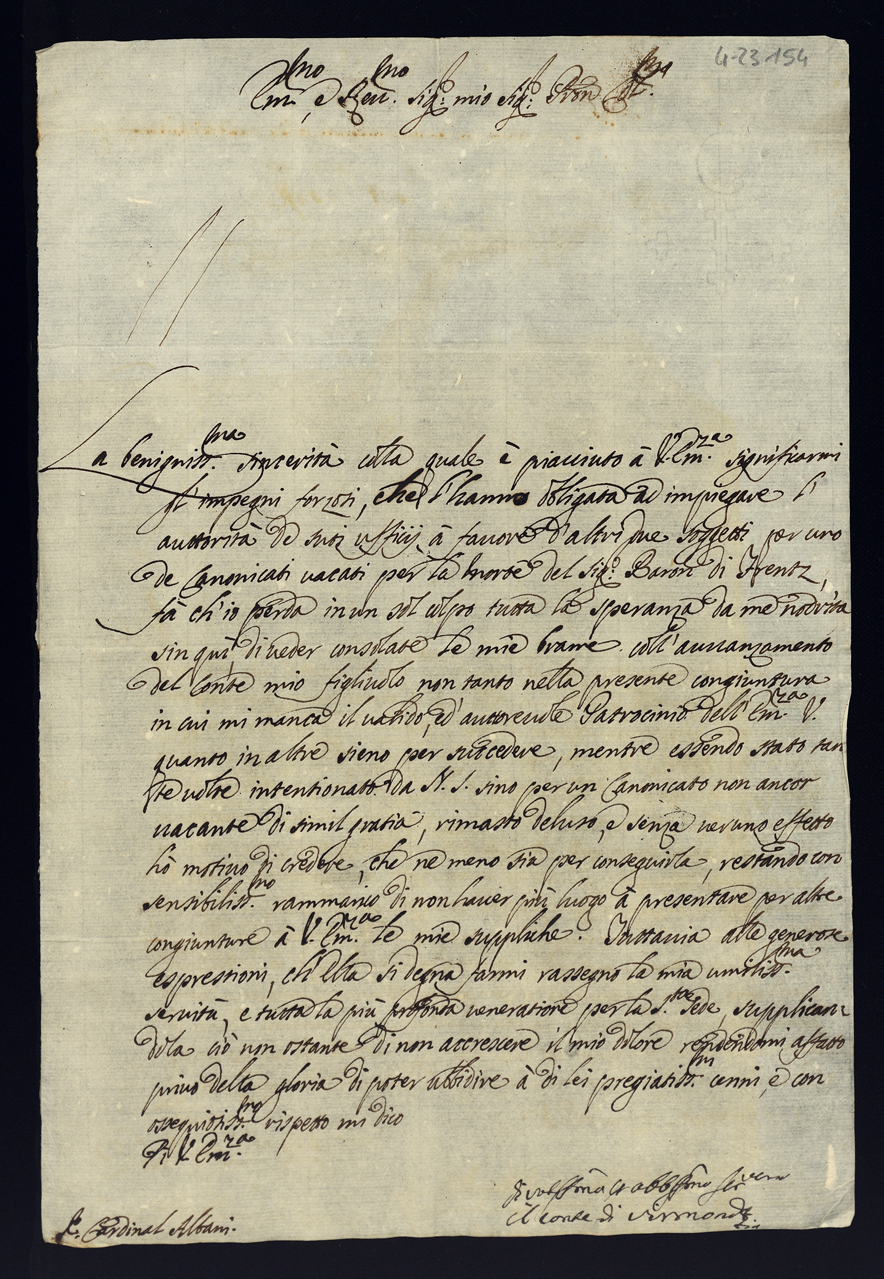 4-23-154
Em.mo e Rev.mo Sig.r mio Sig.r Pron Col.mo
La benigniss.ma sincerità colla quale è piacciuto à V. Em.za significarmi
gl'impegni forzosi, che l'hanno obligata ad impiegare l'
auttorità de suoi ufficij à favore d'altri due soggetti per uno
de Canonicati vacati per la morte del Sig.r Baron di Frentz,
fà ch'io perda in un sol colpo tutta la speranza da me nodrita
sin quì, di veder consolate le mie brame coll'avvanzamento
del Conte mio figliuolo non tanto nella presente congiuntura
in cui mi manca il valido, ed'autorevole Patrocinio dell'Em.za V.
quanto in altre sieno per succedere, mentre essendo stato tan
te volte intentionato da N. S. sino per un Canonicato non ancor
vacante di simil gratia, rimasto deluso, e senza veruno effetto
hò motivo di credere, che ne meno sia per conseguirla, restando con
sensibiliss.mo rammarico di non haver più luogo à presentare per altre
congiunture à V. Em.za le mie suppliche. Tuttavia alle generose
espressioni, ch'Ella si degna farmi rassegno la mia umiliss.ma
servitù, e tutta la più profonda veneratione per la S.ta Sede, supplican
dola ciò non ostante di non accrescere il mio dolore rendendomi affatto
privo della gloria di poter ubbidire à di lei pregiatiss.mi cenni, e con
ossequiosiss.mo rispetto mi dico
Di V. Em.za
il Conte di
S.r Cardinal Albani.